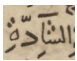 الشَّادَّةِ